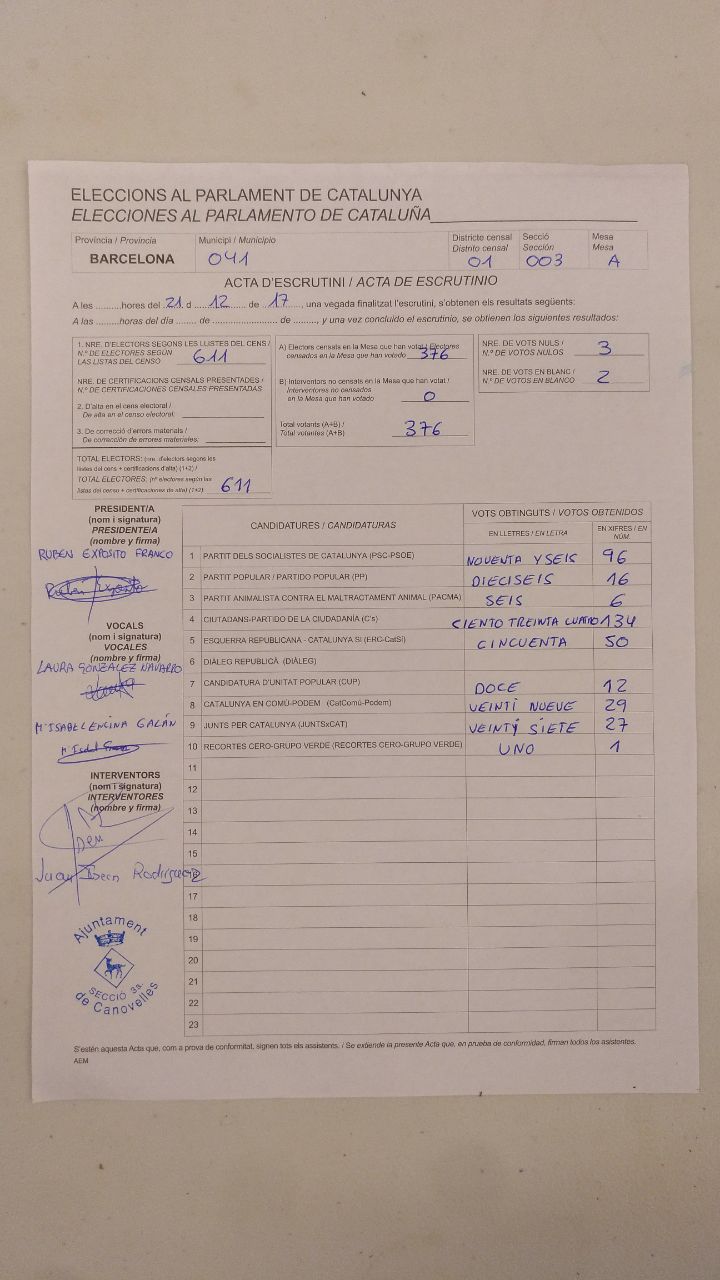 ELECCIONS AL PARLAMENT DE CATALUNYA
ELECCIONES AL PARLAMENTO DE CATALUÑA
Província / Provincia
BARCELONA
Municipi / Municipio
041
Districte censal
Distrito censal
01
Secció
Sección
003
Mesa
Mesa
A
ACTA D'ESCRUTINI / ACTA DE ESCRUTINIO
A les .........hores del 21 d 12 de 17, una vegada finalitzat l'escrutini, s'obtenen els resultats següents:
A las .........horas del día ....... de ...................... de ........, y una vez concluido el escrutinio, se obtienen los siguientes resultados:
1. NRE. D'ELECTORS SEGONS LES LLISTES DEL CENS /
N.º DE ELECTORES SEGÚN
LAS LISTAS DEL CENSO 611
NRE. DE CERTIFICACIONS CENSALS PRESENTADES /
N.º DE CERTIFICACIONES CENSALES PRESENTADAS
2. D'alta en el cens electoral /
De alta en el censo electoral:
3. De correcció d'errors materials /
De corrección de errores materiales:
TOTAL ELECTORS: (nre. d'electors segons les
llistes del cens + certificacions d'alta) (1+2) /
TOTAL ELECTORES: (nº electores según las
listas del censo + certificaciones de alta) (1+2): 611
A) Electors censats en la Mesa que han votat / Electores
censados en la Mesa que han votado 376
B) Interventors no censats en la Mesa que han votat /
Interventores no censados
en la Mesa que han votado 0
Total votants (A+B) /
Total votantes (A+B) 376
NRE. DE VOTS NULS /
N.º DE VOTOS NULOS 3
NRE. DE VOTS EN BLANC /
N.º DE VOTOS EN BLANCO 2
PRESIDENT/A
(nom i signatura)
PRESIDENTE/A
(nombre y firma)
RUBEN EXPOSITO FRANCO
VOCALS
(nom i signatura)
VOCALES
(nombre y firma)
LAURA GONZALEZ NAVARRO
Mª ISABEL ENCINA GALÁN
INTERVENTORS
(nom i signatura)
INTERVENTORES
(nombre y firma)
Ajuntament
SECCIÓ 3a.
de Canovelles
CANDIDATURES / CANDIDATURAS
VOTS OBTINGUTS / VOTOS OBTENIDOS
EN LLETRES / EN LETRA
EN XIFRES / EN
NÚM.
1 PARTIT DELS SOCIALISTES DE CATALUNYA (PSC-PSOE) NOVENTA Y SEIS 96
2 PARTIT POPULAR / PARTIDO POPULAR (PP) DIECISEIS 16
3 PARTIT ANIMALISTA CONTRA EL MALTRACTAMENT ANIMAL (PACMA) SEIS 6
4 CIUTADANS-PARTIDO DE LA CIUDADANÍA (C's) CIENTO TREINTA CUATRO 134
5 ESQUERRA REPUBLICANA - CATALUNYA SÍ (ERC-CatSí) CINCUENTA 50
6 DIÀLEG REPUBLICÀ (DIÀLEG)
7 CANDIDATURA D'UNITAT POPULAR (CUP) DOCE 12
8 CATALUNYA EN COMÚ-PODEM (CatComú-Podem) VEINTI NUEVE 29
9 JUNTS PER CATALUNYA (JUNTSxCAT) VEINTY SIETE 27
10 RECORTES CERO-GRUPO VERDE (RECORTES CERO-GRUPO VERDE) UNO 1
11
12
13
14
15
17
18
19
20
21
22
23
S'estén aquesta Acta que, com a prova de conformitat, signen tots els assistents. / Se extiende la presente Acta que, en prueba de conformidad, firman todos los asistentes.
AEM